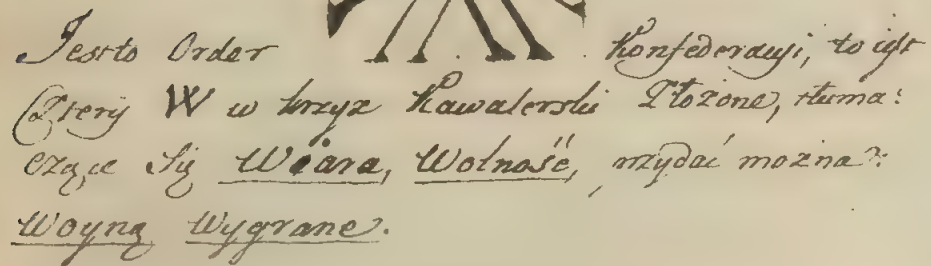 Jest to Order Konfederacyi, to iest
Cztery W w krzyż Kawalerski Złożone, tłuma:
czące Się Wiara, Wolność, przydać można:
Woyną Wygrane.